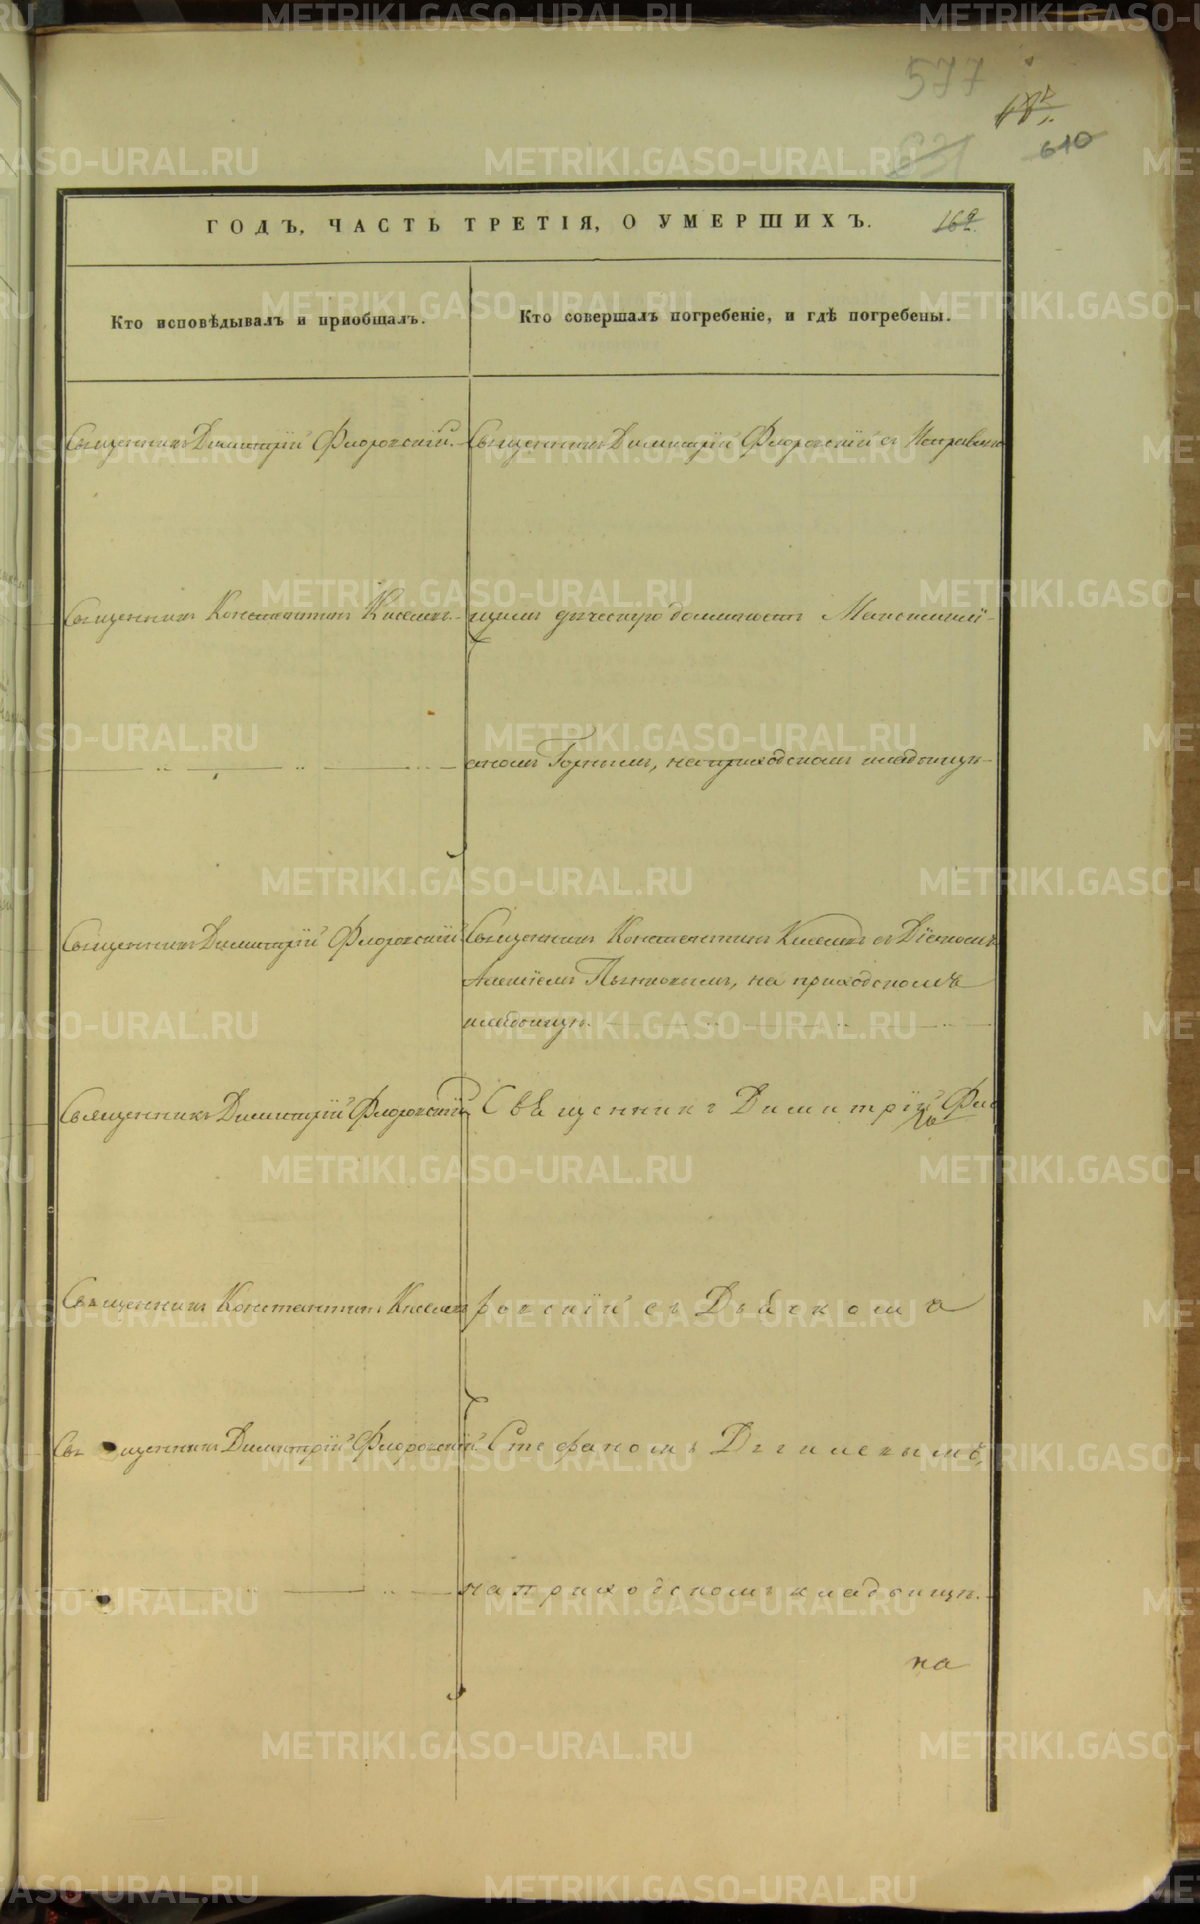 577
631
610
ГОДЪ, ЧАСТЬ ТРЕТІЯ, О УМЕРШИХЪ.
Кто исповѣдывалъ и приобщалъ.
Кто совершалъ погребеніе, и гдѣ погребены.
Священникъ Димитрій Флоровскій.
Священникъ Димитрій Флоровскій съ Исправляю
Священникъ Константинъ Киселевъ.
щимъ дьяческую должность
скомъ Горнымъ, на приходскомъ кладбищѣ
Священникъ Димитрій Флоровскій
Священникъ Константинъ Киселевъ съ Діакономъ
Алексіемъ на приходскомъ
кладбищѣ.
Священникъ Димитрій Флоровскій
Священникъ Димитрій Фло
Священникъ Константинъ Киселевъ
ровскій съ Дьячкомъ
Священникъ Димитрій Флоровскій
Стефаномъ
на приходскомъ кладбищѣ.
на
METRIKI.GASO-URAL.RU